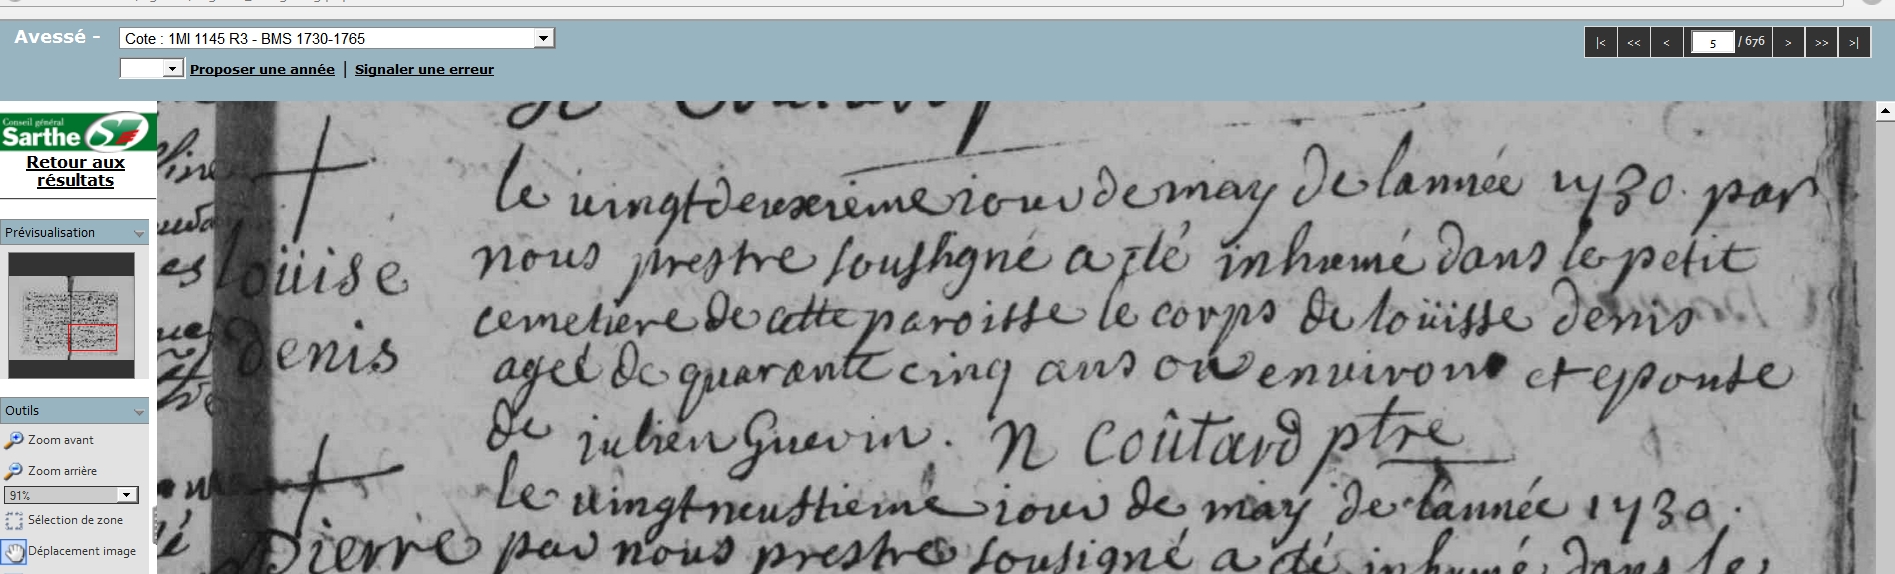 Avessé -
Cote : 1MI 1145 R3 - BMS 1730-1765
Proposer une année | Signaler une erreur
|< << < 5 / 676 > >> >|
Conseil général
Sarthe
Retour aux
résultats
Prévisualisation
Outils
Zoom avant
Zoom arrière
91%
Sélection de zone
Déplacement image
loüise
denis
le vingtdeuxieme iour de may de lannée 1730. par
nous prestre soussigné a eté inhumé dans le petit
cemetiere de cette paroisse le corps de loüisse denis
ageé de quarante cinq ans ou environ et epouse
de iulien Guerin. N Coûtard ptre
le vingtneuftieme iour de may de lannée 1730.
Pierre par nous prestre sousigné a eté inhumé dans le